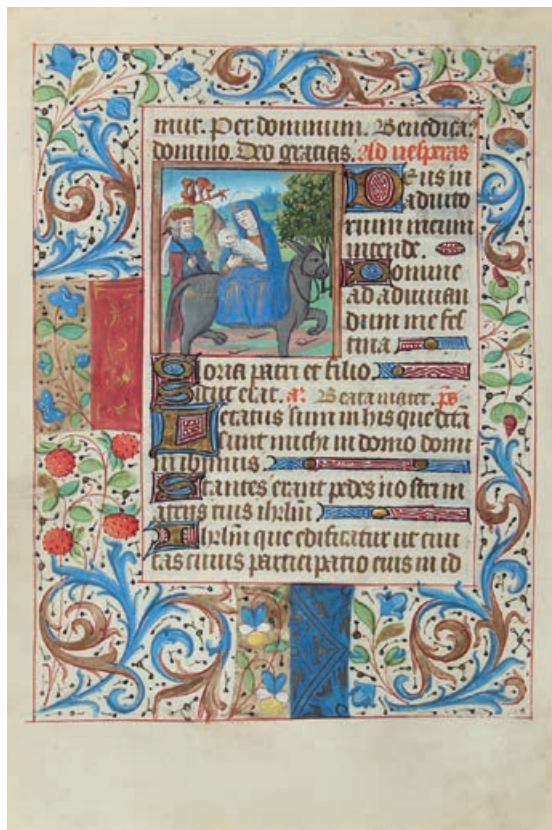 mur. Per dominum. Benedica
domino. Deo gracias. Ad uesperas
Deus in
adiuto
rium meum
intende.
Domine
ad adiuuan
dum me fes
tina
Gloria patri et filio
Sicut erat. a. Beata mater. ps
Letatus sum in his que dcta
sunt michi in domo domi
ni ibimus
Stantes erant pedes nostri in
atriis tuis ihrlm
Ihrlm que edificatur ut ciui
tas cuius participatio eius in id